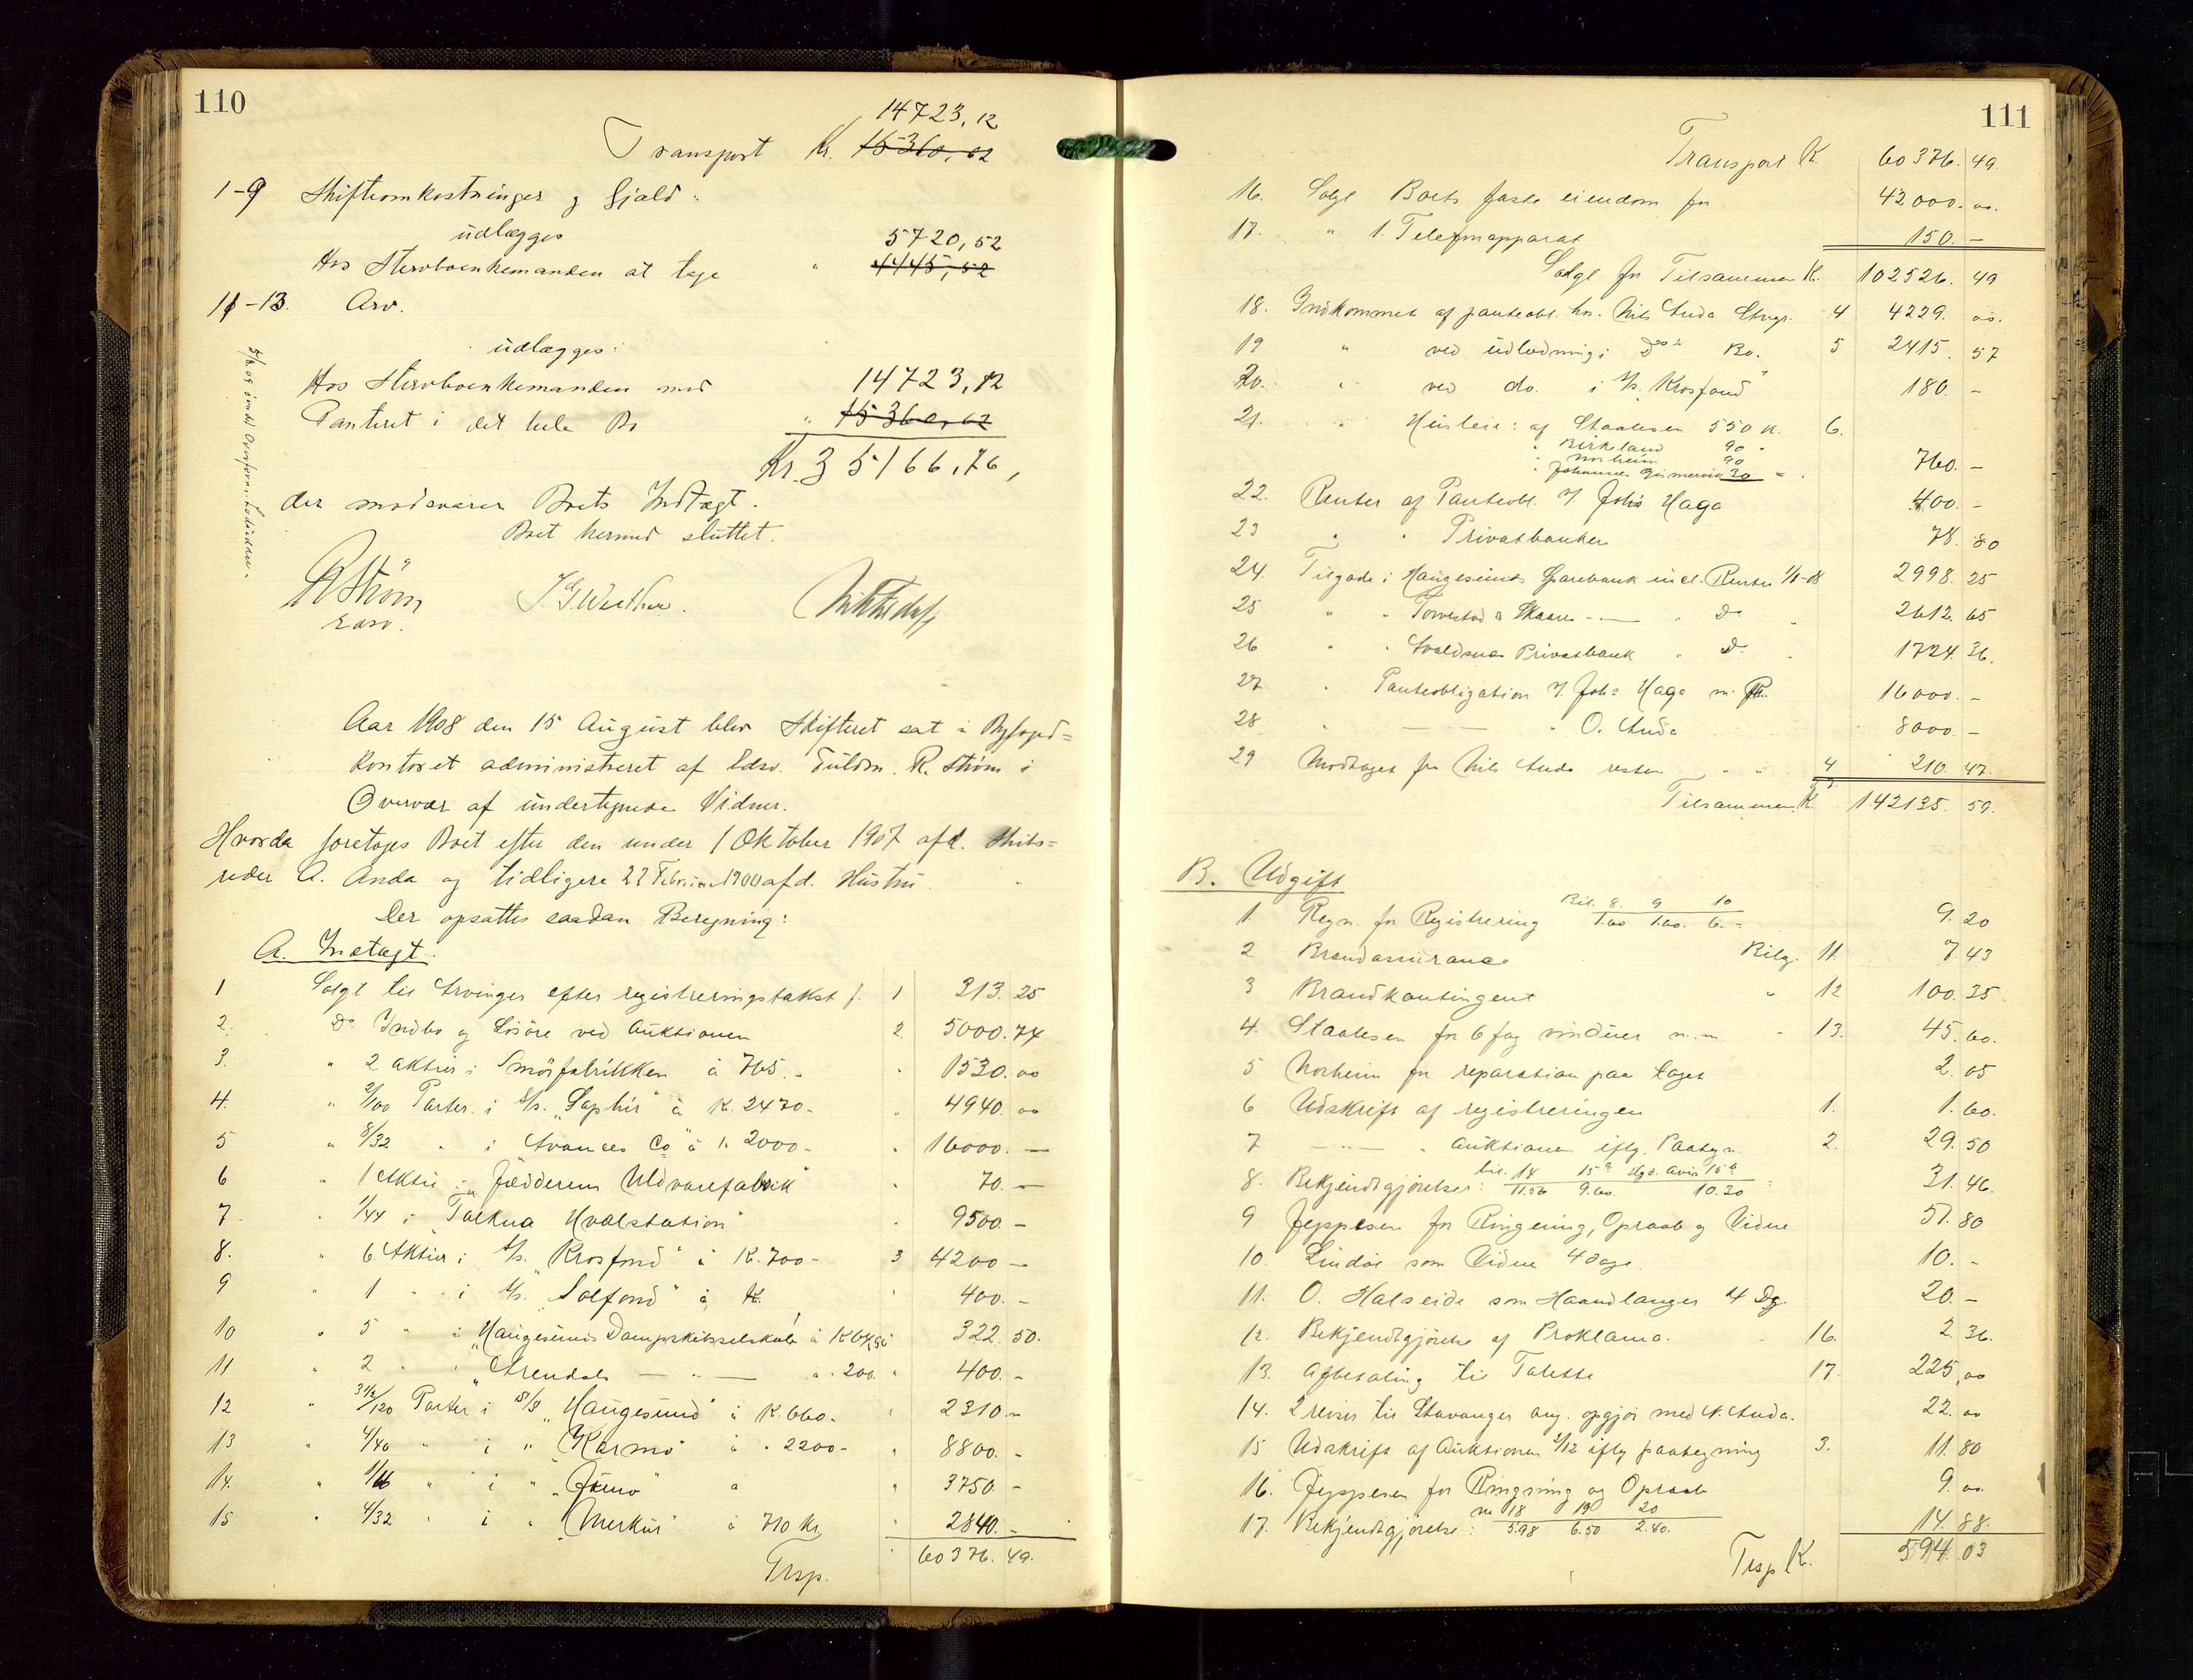 110
14723,12
Transport Kr. 15360,62
1-9 Skifteomkostninger og Gjæld:
udlægges
5720,52
Hos Stervboenkemanden at tage " 4445,52
11-13. Arv.
udlægges:
Hos Stervboenkemanden med 14723,12
Panteret i det hele Bo " 15360,62
Kr. 35166,76,
der modsvarer Boets Indtægt.
Boet hermed sluttet.
R Strøm
Edsv.
J. G. Wecther.
Aar 1908 den 15 August blev Skifteret sat i Byfoged=
kontoret administreret af Edsv. Fuldm. R. Strøm i
Overvær af undertegnede Vidner.
Hvorda foretoges Boet efter den under 1 Oktober 1907 afd. Skibs=
reder A. Anda og tidligere 22 Februar 1900 afd. Hustru.
Der opsattes saadan Beregning:
A. Indtægt.
1 Solgt til Arvinger efter registreringstakst f. 1 313.25
2. Do Indbo og Løsøre ved Auktionen 2. 5000.74
3. " 2 aktier i Smørfabrikken à 765.- " 1530.00
4. " 2/100 Parter i s/s. "Saphir" à K. 2470- " 4940.00
5 " 8/32 " i Avances Co" à K. 2000- " 16000.—
6 " 1 Aktie i "Jædderens Uldvarefabrik" " 70.—
7. " 1/44 i "Talkna Hvalstation" " 9500.-
8. " 6 Aktier i s/s. "Krosfond" à K. 700- 3 4200-
9 " 1 " i s/s. "Solfond" à K. " 400.-
10 " 5 " i "Haugesunds Dampskibsselskab" à K 64,50 322.50.
11 " 2 " "Arendals — " — à 200. " 400.-
12 " 3 1/2/120 Parter i S/S "Haugesund" à K. 660- " 2310.-
13 " 4/40 " i " "Karmö" à " 2200- " 8800.-
14. " 1/16 " i " "Juno" à " 3750.-
15 " 4/32 " i " "Merkur" à 710 Kr. " 2840.-
Trsp. 60376.49.
111
Transport K. 60376.49.
16. Solgt Boets faste eiendom for 42000.00.
17. " 1. Telefonapparat 150.-
Solgt for Tilsammen K. 102526.49
18. Indkommet af panteobl. hos. Nils Anda Stvgr. 4 4229.00.
19 " ved udlodning i Do's Bo. 5 2415.57
20. " ved do. i s/s. "Krosfond" 180.-
21. " Husleie: af Staalesen 550 K. 6.
" Birkeland 90 "
" Norheim 90
" Johannes 30 - 760.-
22. Renter af Panteobl. f. Johs Haga 400.-
23 " " Privatbanken 78.80
24. Tilgode i Haugesunds Sparebank incl. Renter 1/1-08 2998.25
25 " " Torvestad & Skaare -— " Do 2612.65
26 " " Avaldsnes Privatbank " Do 1724.36.
27 " Panteobligation f. Johs Haga m. fl. 16000.-
28 " — — " O. Anda 8000.-
29 Modtaget fra Nils Anda resten " " 4 210.47.
Tilsammen K. 142135.59.
B. Udgift
1. Regn. for Registrering Bil. 8. 9 10 9.20
1.60 1.60. 6.-
2 Brandassurance Bilg. 11. 7.43
3 Brandkontingent " 12 100.35
4. Staalesen for 6 fag vinduer m.m. " 13. 45.60.
5 Norheim for reparation paa taget 2.05
6 Udskrift af registreringen 1. 1.60.
7 — " — " Auktionen iflg. Paategn. 2. 29.50
8. Bekjendtgjørelser: bil. 14 15a Hgs. Avis 15b 31.46.
11.56 9.60 10.30
9 Jeppesen for Ringning, Opraab og Vidne 51.80
10. Lindøe som Vidne 4 dage. 10.-
11. O. Halseide som Haandlanger 4 Dg. 20.-
12. Bekjendtgjørelse af Proklama. " 16. 2.36.
13. Afbetaling til Tolette 17. 225,00
14. 2 reiser til Stavanger ang. opgjør med N. Anda. 22.00
15 Udskrift af Auktionen 2/12 iflg paategning 3. 11.80
16. Jeppesen for Ringning og Opraab 9.00
17. Bekjendtgjørelse: no 18 19 20 14.88.
5.98 6.50 2.40.
Trsp K. 594.03